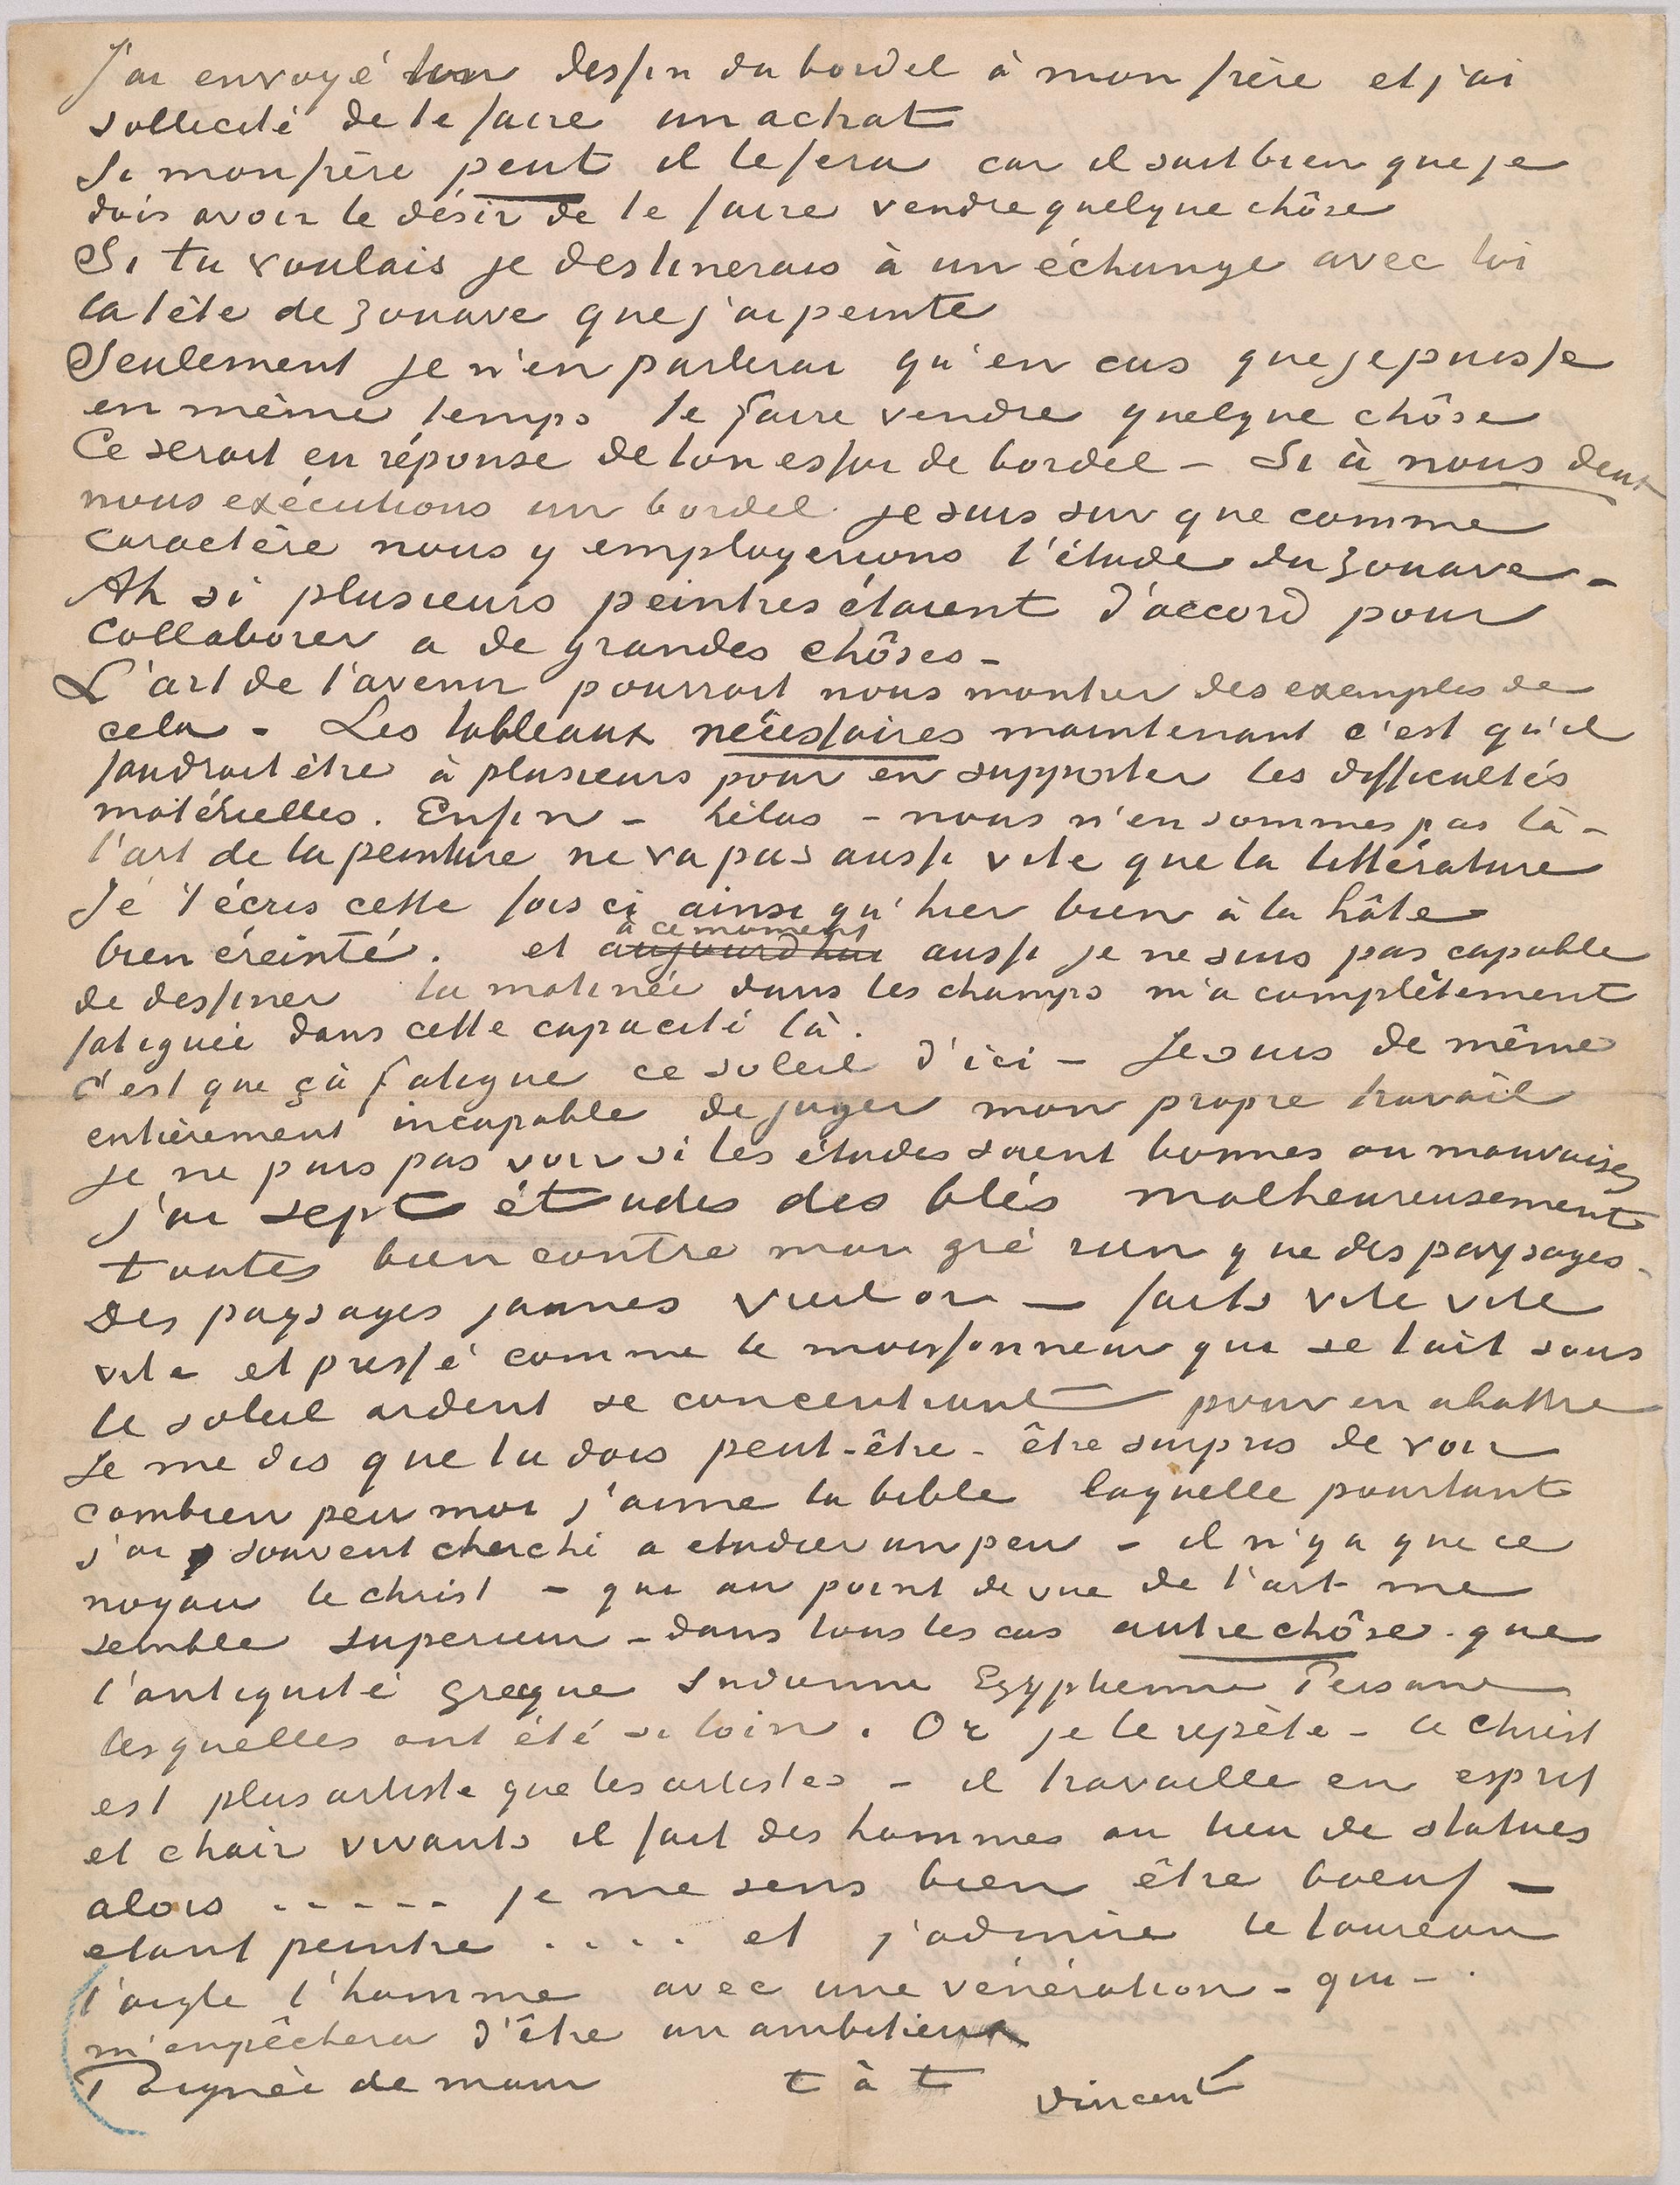 J'ai envoyé ton dessin du bordel à mon frère et j'ai
sollicité de te faire un achat
Si mon frère peut il le fera car il sait bien que je
dois avoir le désir de te faire vendre quelque chôse
Si tu voulais je destinerais à un échange avec toi
la tête de zouave que j'ai peinte
Seulement je n'en parlerai qu'en cas que je puisse
en même temps te faire vendre quelque chôse
Ce serait en réponse de ton essai de bordel – Si à nous deux
nous exécutions un bordel je suis sur que comme
caractère nous y employerions l'étude du zouave –
Ah si plusieurs peintres étaient d'accord pour
collaborer a de grandes chôses –
L'art de l'avenir pourrait nous montrer des exemples de
cela – Les tableaux nécessaires maintenant c'est qu'il
faudrait être à plusieurs pour en supporter les difficultés
matérielles. Enfin – hélas – nous n'en sommes pas là –
l'art de la peinture ne va pas aussi vite que la littérature
Je t'écris cette fois ci ainsi qu'hier bien à la hâte
à ce moment
bien éreinté. et aujourd'hui aussi je ne suis pas capable
de dessiner la matinée dans les champs m'a complètement
fatiguée dans cette capacité là.
C'est que çà fatigue ce soleil d'ici – Je suis de même
entièrement incapable de juger mon propre travail
je ne puis pas voir si les études soient bonnes ou mauvaises
j'ai sept études des blés malheureusement
toutes bien contre mon gré rien que des paysages –
Des paysages jaunes vieil or – faits vite vite
vite et pressé comme le moissonneur qui se tait sous
le soleil ardent se concentrant pour en abattre
Je me dis que tu dois peut-être – être surpris de voir
combien peu moi j'aime la bible laquelle pourtant
j'ai souvent cherché a etudier un peu – il n'y a que ce
noyau le christ – qui au point de vue de l'art me
semble superieur – dans tous les cas autre chôse – que
l'antiquité grecque Indienne Egyptienne Persane
lesquelles ont été si loin. Or je le repète – le christ
est plus artiste que les artistes – il travaille en esprit
et chair vivants il fait des hommes au lieu de statues
alors ..... je me sens bien être boeuf –
etant peintre .... et j'admire le taureau
l'aigle l'homme avec une vénération – qui – .
m'empêchera d'être un ambitieux
Poignée de main t à t Vincent